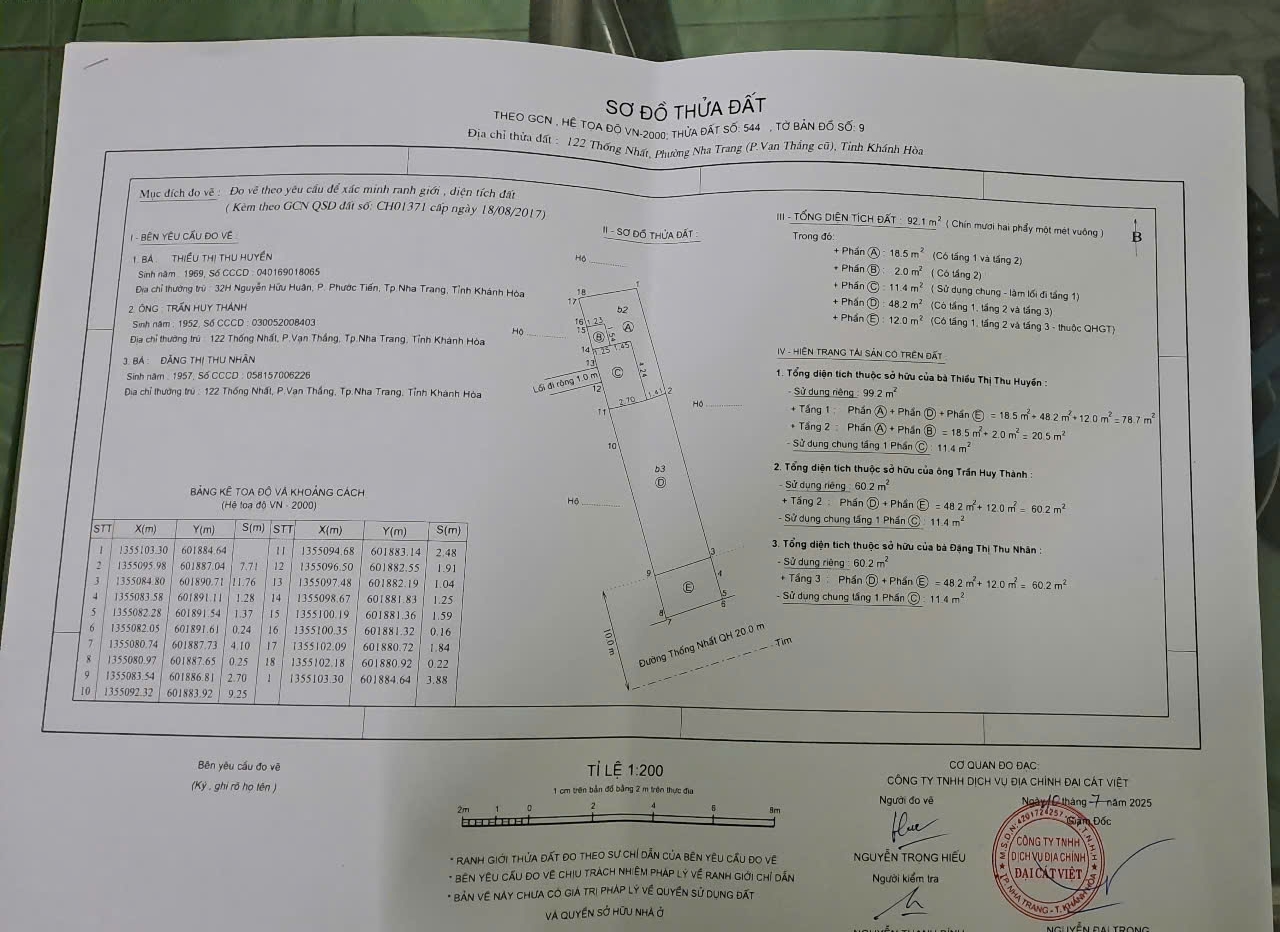 SƠ ĐỒ THỬA ĐẤT
THEO GCN , HỆ TỌA ĐỘ VN-2000; THỬA ĐẤT SỐ: 544 , TỜ BẢN ĐỒ SỐ: 9
Địa chỉ thửa đất : 122 Thống Nhất, Phường Nha Trang (P.Vạn Thắng cũ), Tỉnh Khánh Hòa
Mục đích đo vẽ : Đo vẽ theo yêu cầu để xác minh ranh giới , diện tích đất
( Kèm theo GCN QSD đất số: CH01371 cấp ngày 18/08/2017)
I - BÊN YÊU CẦU ĐO VẼ :
1. BÀ : THIỀU THỊ THU HUYỀN
Sinh năm : 1969, Số CCCD : 040169018065
Địa chỉ thường trú : 32H Nguyễn Hữu Huân, P. Phước Tiến, Tp.Nha Trang, Tỉnh Khánh Hòa
2. ÔNG : TRẦN HUY THÀNH
Sinh năm : 1952, Số CCCD : 030052008403
Địa chỉ thường trú : 122 Thống Nhất, P.Vạn Thắng, Tp.Nha Trang, Tỉnh Khánh Hòa
3. BÀ : ĐẶNG THỊ THU NHÂN
Sinh năm : 1957, Số CCCD : 058157006226
Địa chỉ thường trú : 122 Thống Nhất, P.Vạn Thắng, Tp.Nha Trang, Tỉnh Khánh Hòa
BẢNG KÊ TỌA ĐỘ VÀ KHOẢNG CÁCH
(Hệ tọa độ VN - 2000)
STT X(m) Y(m) S(m) STT X(m) Y(m) S(m)
1 1355103.30 601884.64 11 1355094.68 601883.14 2.48
2 1355095.98 601887.04 7.71 12 1355096.50 601882.55 1.91
3 1355084.80 601890.71 11.76 13 1355097.48 601882.19 1.04
4 1355083.58 601891.11 1.28 14 1355098.67 601881.83 1.25
5 1355082.28 601891.54 1.37 15 1355100.19 601881.36 1.59
6 1355082.05 601891.61 0.24 16 1355100.35 601881.32 0.16
7 1355080.74 601887.73 4.10 17 1355102.09 601880.72 1.84
8 1355080.97 601887.65 0.25 18 1355102.18 601880.92 0.22
9 1355083.54 601886.81 2.70 1 1355103.30 601884.64 3.88
10 1355092.32 601883.92 9.25
II - SƠ ĐỒ THỬA ĐẤT :
Hộ ............
18 1
17
b2
16 1.23 A
Hộ ............
15 B 1.54
14 1.25 1.45
13 C 4.24
Lối đi rộng 1.0 m
12
2.70 1.41 2
11
Hộ ............
10
b3
D
Hộ ............
3
9
4
E
5
8 6
7
10.0 m
Đường Thống Nhất QH 20.0 m
Tim
III - TỔNG DIỆN TÍCH ĐẤT : 92.1 m² ( Chín mươi hai phẩy một mét vuông )
B
Trong đó:
+ Phần A : 18.5 m² (Có tầng 1 và tầng 2)
+ Phần B : 2.0 m² ( Có tầng 2)
+ Phần C : 11.4 m² ( Sử dụng chung - làm lối đi tầng 1)
+ Phần D : 48.2 m² (Có tầng 1, tầng 2 và tầng 3)
+ Phần E : 12.0 m² (Có tầng 1, tầng 2 và tầng 3 - thuộc QHGT)
IV - HIỆN TRẠNG TÀI SẢN CÓ TRÊN ĐẤT :
1. Tổng diện tích thuộc sở hữu của bà Thiều Thị Thu Huyền :
- Sử dụng riêng : 99.2 m²
+ Tầng 1 : Phần A + Phần D + Phần E = 18.5 m² + 48.2 m² + 12.0 m² = 78.7 m²
+ Tầng 2 : Phần A + Phần B = 18.5 m² + 2.0 m² = 20.5 m²
- Sử dụng chung tầng 1 Phần C : 11.4 m²
2. Tổng diện tích thuộc sở hữu của ông Trần Huy Thành :
- Sử dụng riêng : 60.2 m²
+ Tầng 2 : Phần D + Phần E = 48.2 m² + 12.0 m² = 60.2 m²
- Sử dụng chung tầng 1 Phần C : 11.4 m²
3. Tổng diện tích thuộc sở hữu của bà Đặng Thị Thu Nhân :
- Sử dụng riêng : 60.2 m²
+ Tầng 3 : Phần D + Phần E = 48.2 m² + 12.0 m² = 60.2 m²
- Sử dụng chung tầng 1 Phần C : 11.4 m²
Bên yêu cầu đo vẽ
(Ký , ghi rõ họ tên )
TỈ LỆ 1:200
1 cm trên bản đồ bằng 2 m trên thực địa
2m 1 0 2 4 6 8m
* RANH GIỚI THỬA ĐẤT ĐO THEO SỰ CHỈ DẪN CỦA BÊN YÊU CẦU ĐO VẼ
* BÊN YÊU CẦU ĐO VẼ CHỊU TRÁCH NHIỆM PHÁP LÝ VỀ RANH GIỚI CHỈ DẪN
* BẢN VẼ NÀY CHƯA CÓ GIÁ TRỊ PHÁP LÝ VỀ QUYỀN SỬ DỤNG ĐẤT
VÀ QUYỀN SỞ HỮU NHÀ Ở
CƠ QUAN ĐO ĐẠC:
CÔNG TY TNHH DỊCH VỤ ĐỊA CHÍNH ĐẠI CÁT VIỆT
Người đo vẽ
Ngày 10 tháng 7 năm 2025
Giám Đốc
NGUYỄN TRỌNG HIẾU
Người kiểm tra
M.S.D.N: 4201724257 - C.T.T.N.H.H
CÔNG TY TNHH
DỊCH VỤ ĐỊA CHÍNH
ĐẠI CÁT VIỆT
TP. NHA TRANG - T. KHÁNH HÒA
NGUYỄN ĐẠI TRỌNG